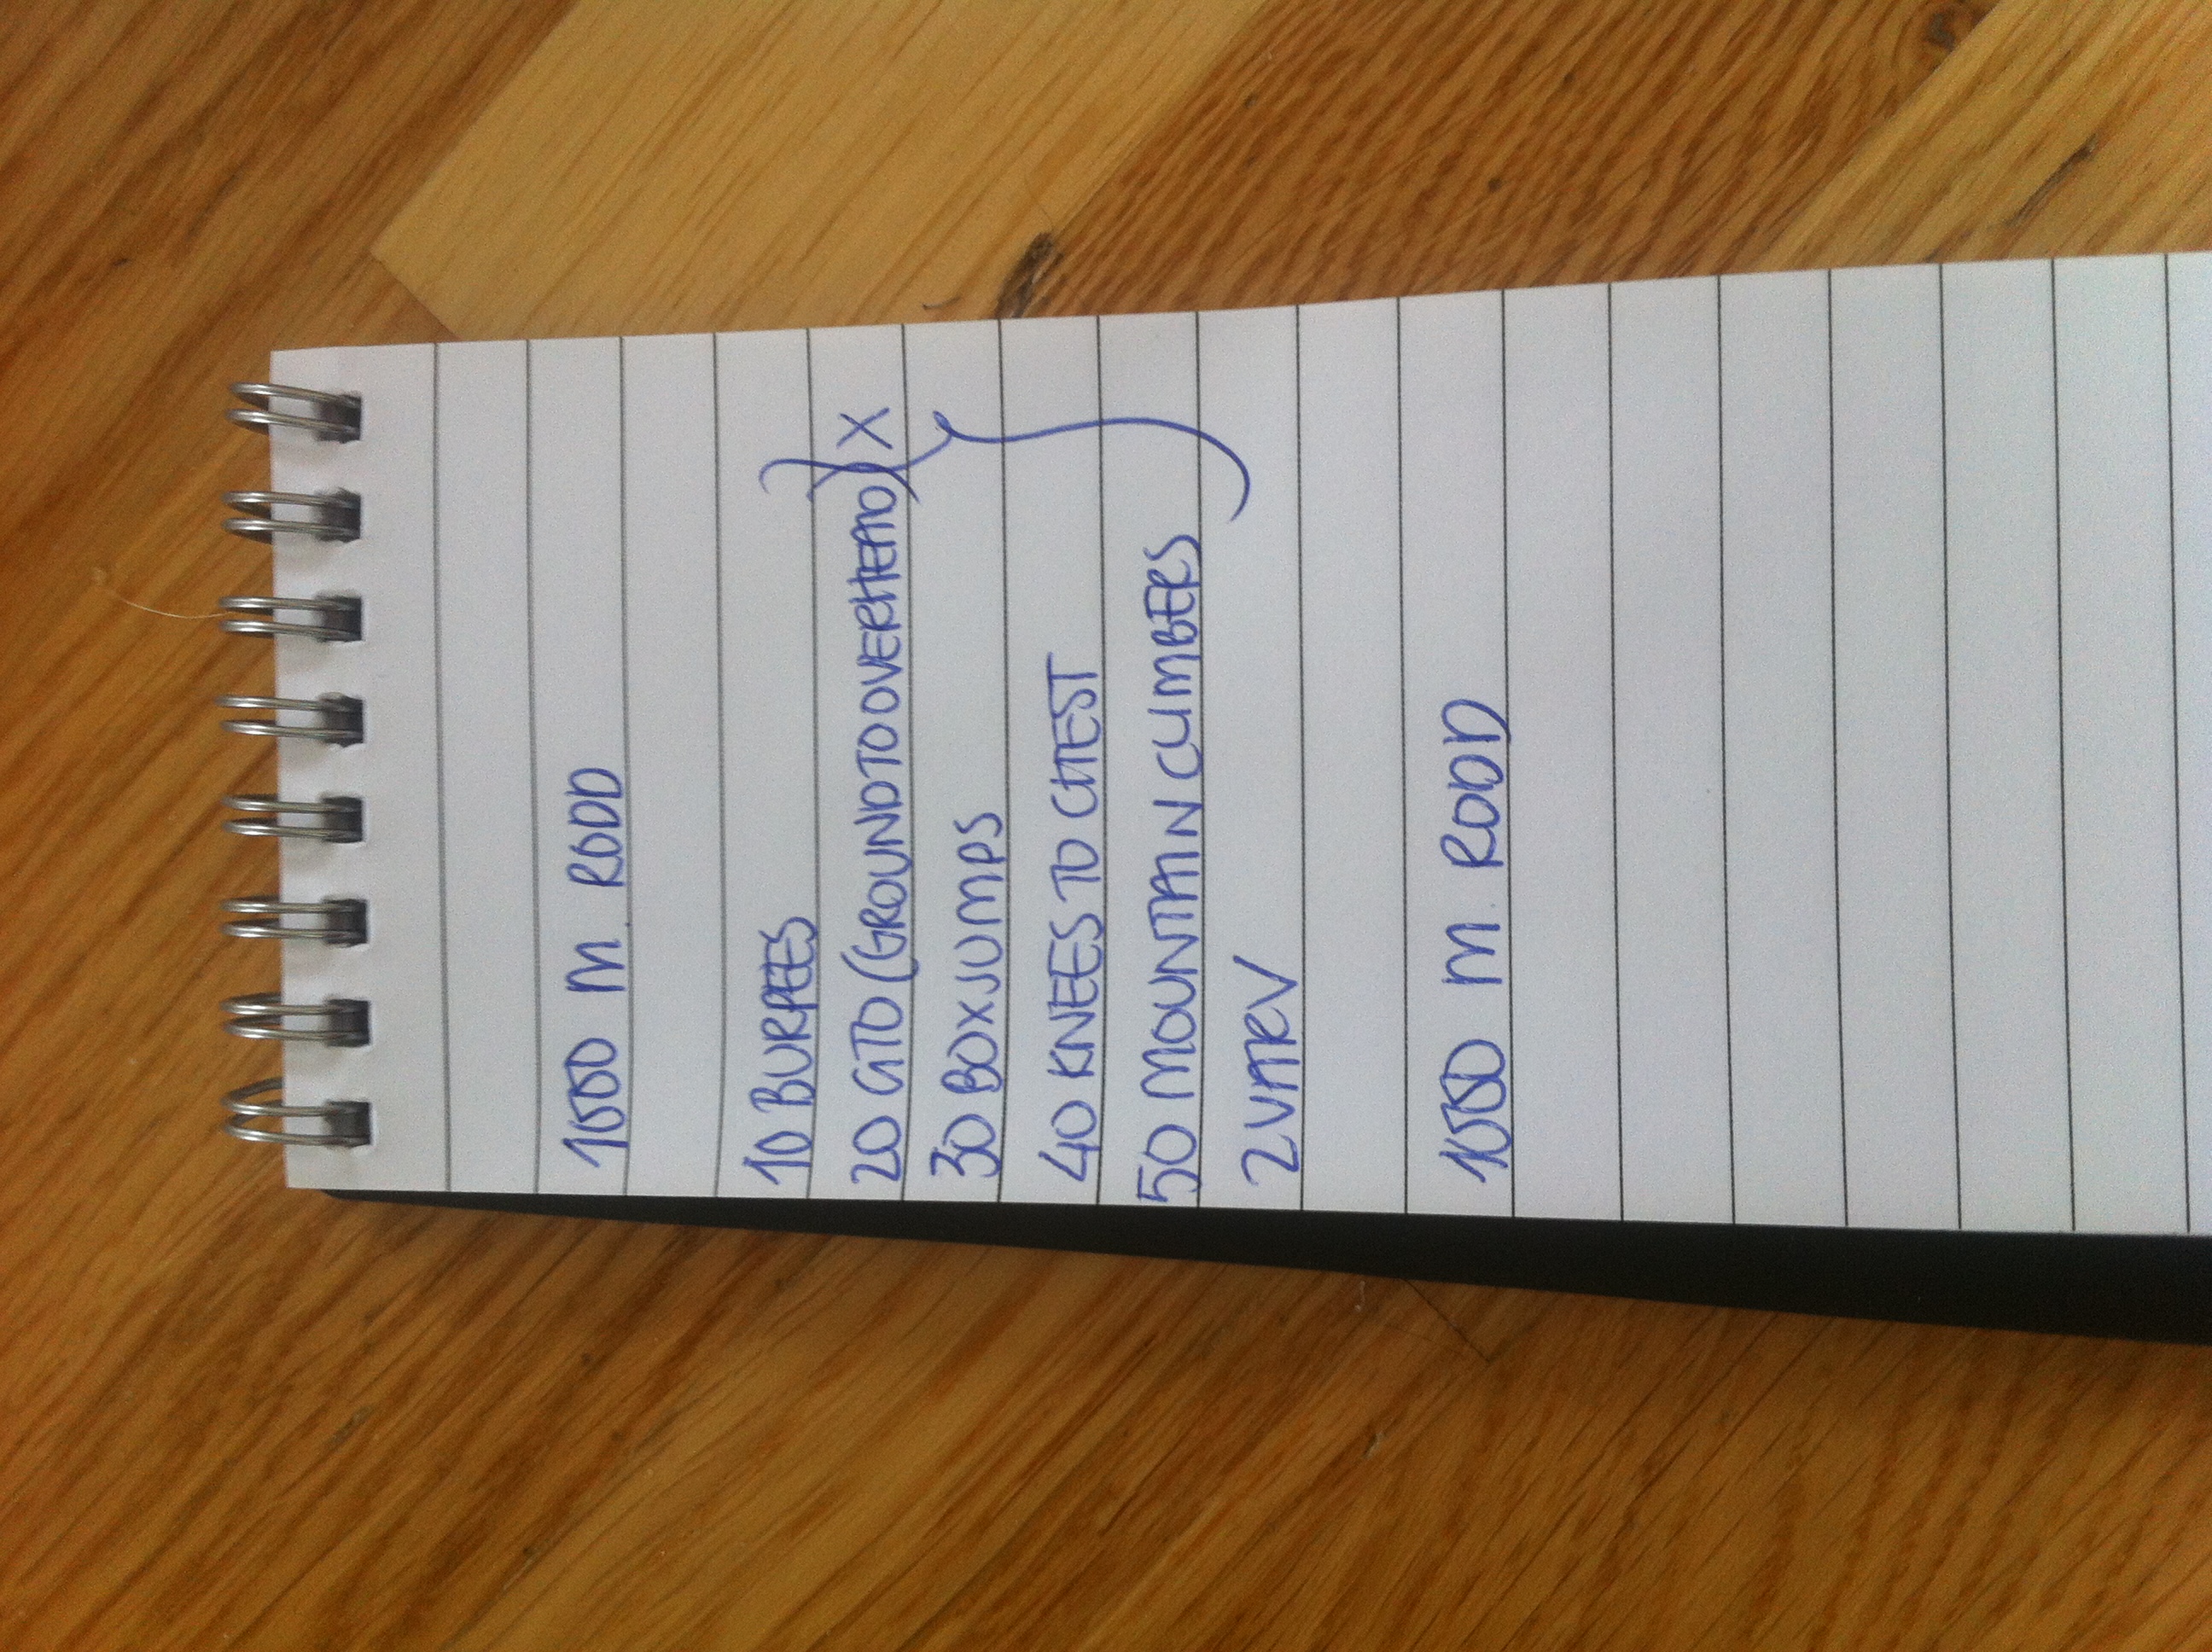 1000 M RODD
10 BURPEES
20 GTO (GROUND TO OVERHEAD) X
30 BOXJUMPS
40 KNEES TO CHEST
50 MOUNTAIN CLIMBERS
2 VARV
1000 M RODD